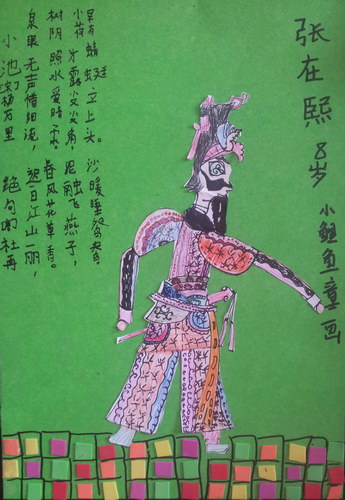 小池 杨万里
泉眼无声惜细流,
树阴照水爱晴柔,
小荷才露尖尖角
早有蜻蜓立上头。
绝句 杜甫
迟日江山丽,
春风花草香。
泥融飞燕子,
沙暖睡鸳鸯
张在熙 8岁 小鲤鱼童画